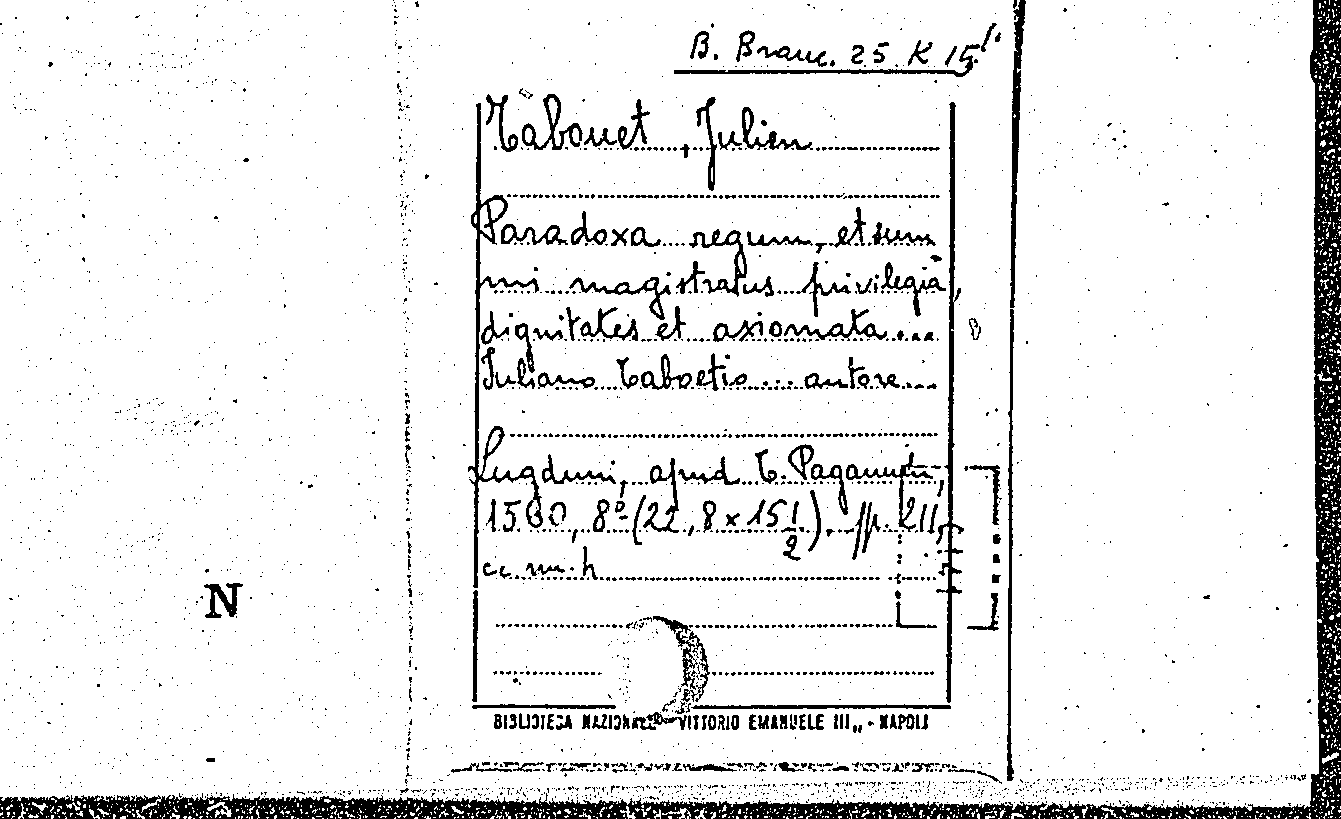 B. Branc. 25 K 15¹·
Tabouet, Julien
Paradoxa regum, et sum
mi magistratus privilegia,
dignitates et axiomata...
Iuliano Taboetio... autore...
Lugduni, apud T. Paganum,
1560, 8º (22,8 x 15 1/2). pp. 211,
cc. nn. h
N
BIBLIOTECA NAZIONALE "VITTORIO EMANUELE III„ - NAPOLI